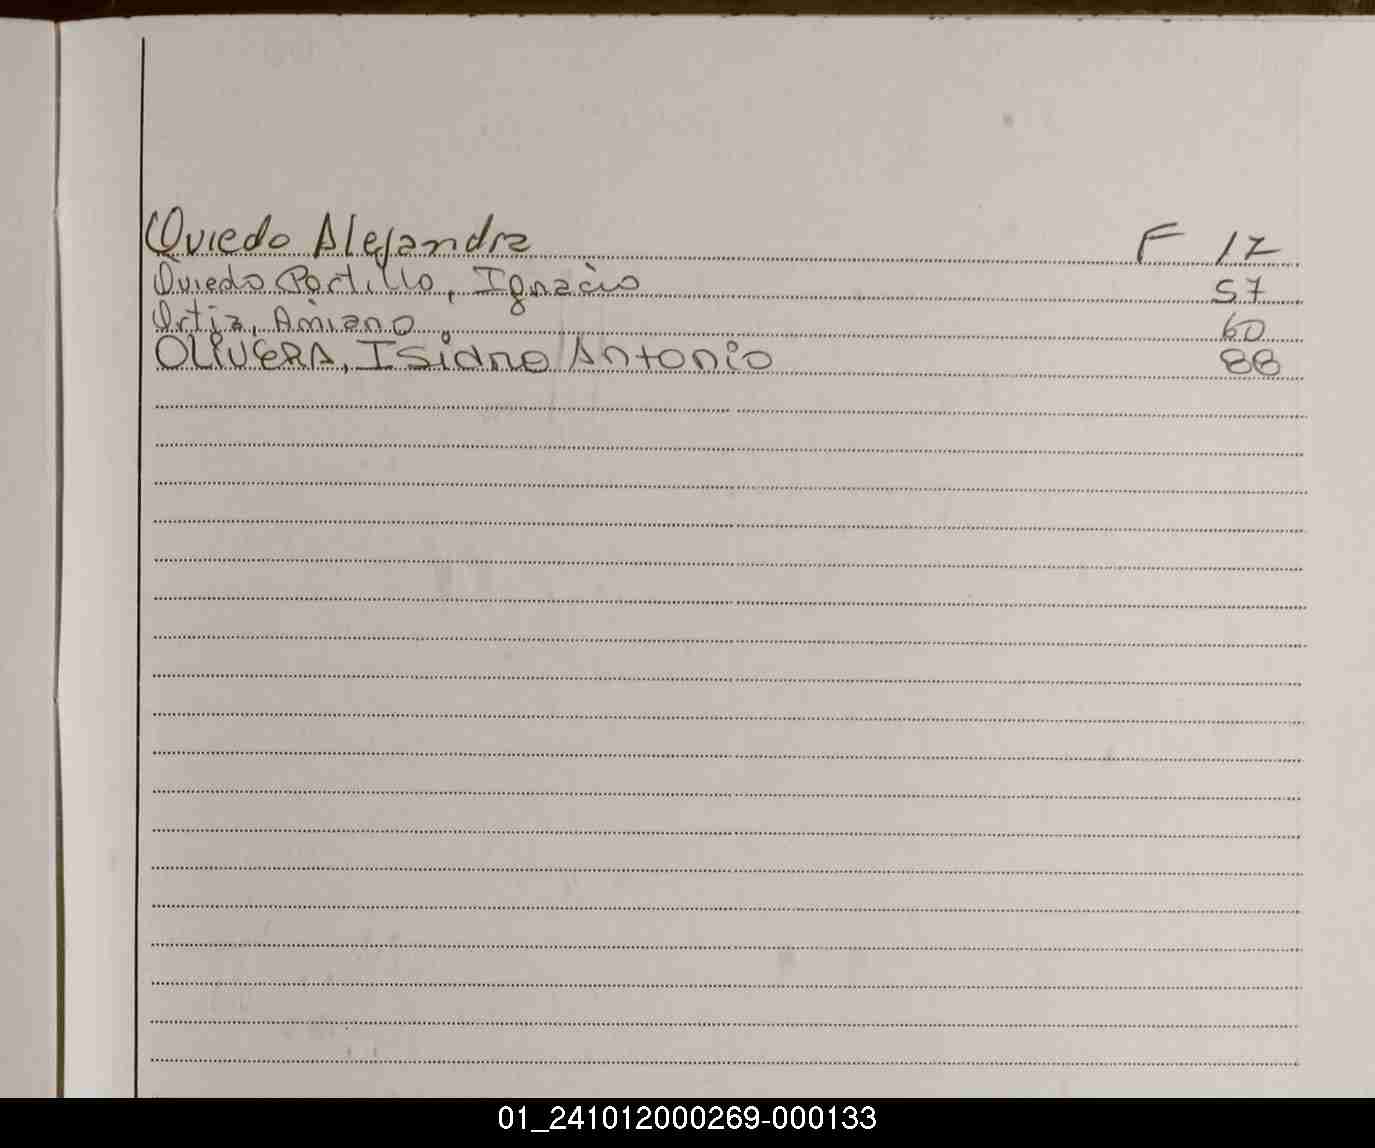 Oviedo Alejandra F 17
Oviedo Portillo, Ignacio 57
Ortiz, Amiano 60
OLIVERA, Isidro Antonio 88
01_241012000269-000133